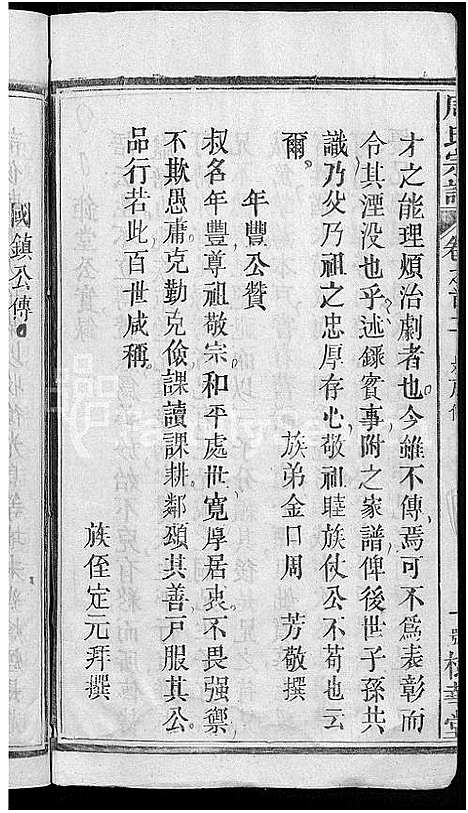 周氏宗譜 卷之首二
才之能理煩治劇者也今雖不傳焉可不為表彰而
令其湮没也乎述錄實事附之家譜俾後世子孫共
識乃父乃祖之忠厚存心敬祖睦族仗公不苟也云
爾
族弟金口周 芳敬撰
年豐公贊
叔名年豐尊祖敬宗和平處世寬厚居衷不畏强禦
不欺愚庸克勤克儉課讀課耕鄰頌其善戸服其公
品行若此百世咸稱
族侄定元拜撰
國鎮公傳